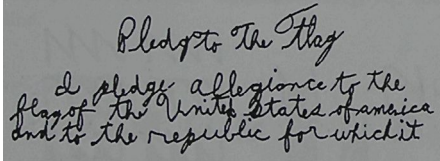 Pledg to The Flag
I pledge allegiance to the
flag of the United States of america
and to the republic for which it